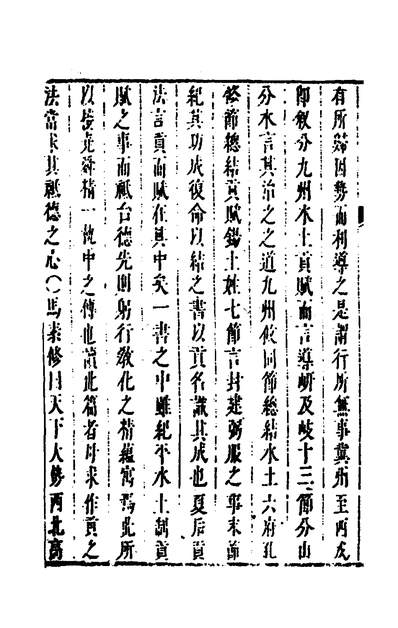 有所歸因勢而利導之是謂行所無事冀州至西戎
卽叙分九州水土貢賦而言導岍及岐十三節分山
分水言其治之之道九州攸同節總結水土六府孔
修節總結貢賦錫土姓七節言封建弼服之事末節
紀其功成復命以結之書以貢名識其成也夏后貢
法言貢而賦在其中矣一書之中雖紀平水土制貢
賦之事而祗台德先則躬行敎化之精蘊寓焉此所
以接堯舜精一執中之傳也讀此篇者毋求作貢之
法當求其祗德之心〇馬素修曰天下大勢西北高